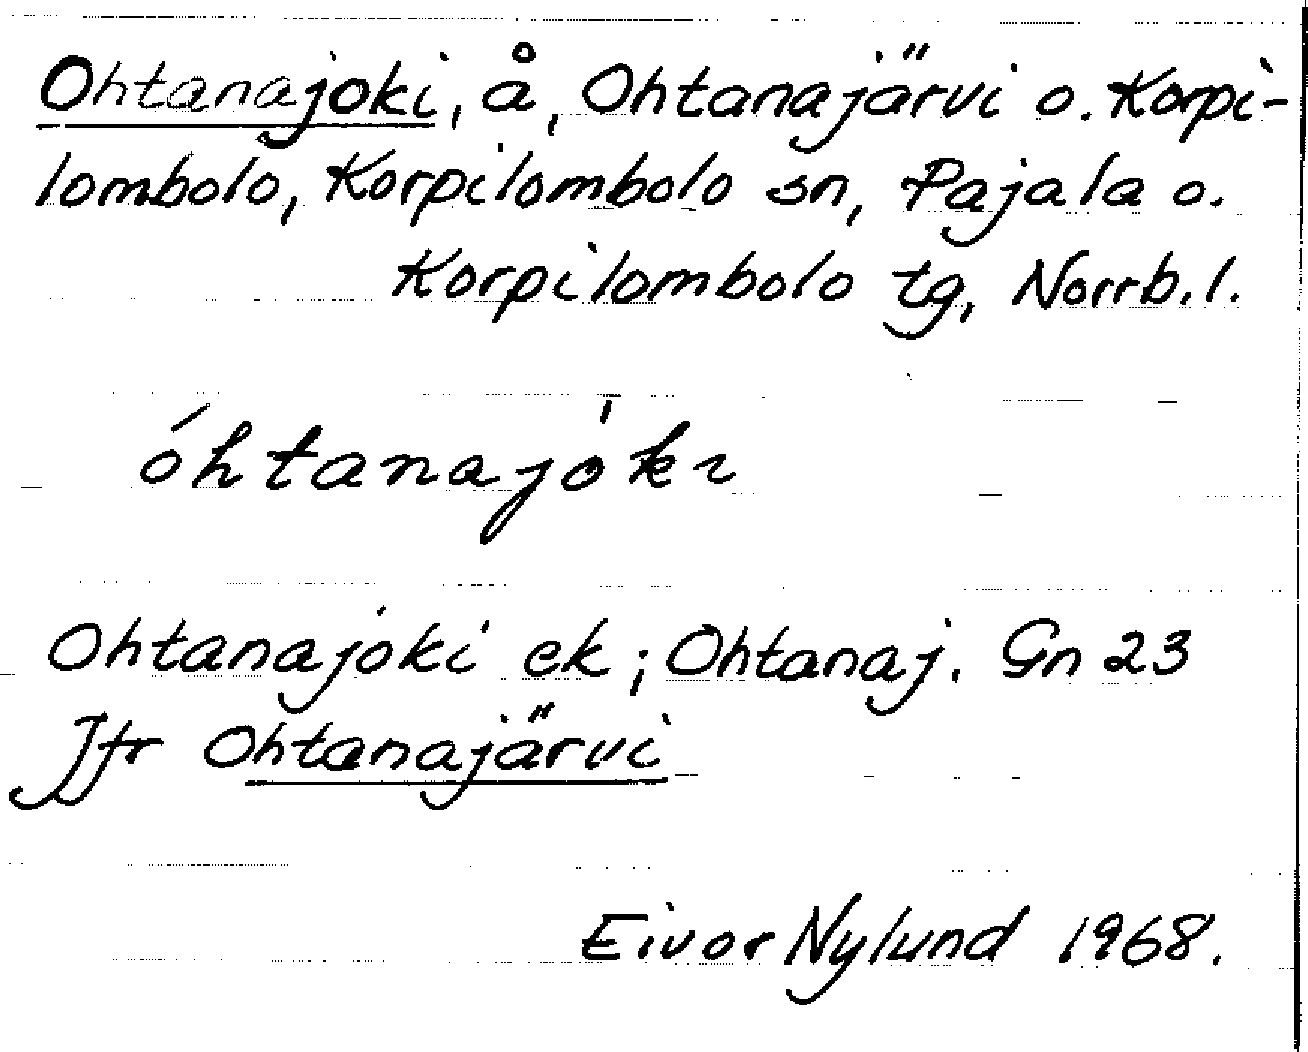 Ohtanajoki, å, Ohtanajärvi o. Korpi-
lombolo, Korpilombolo sn, Pajala o.
Korpilombolo tg, Norrb. l.
óhtanajòkɩ
Ohtanajoki ek; Ohtanaj. Gn 23
Jfr Ohtanajärvi
Eivor Nylund 1968.